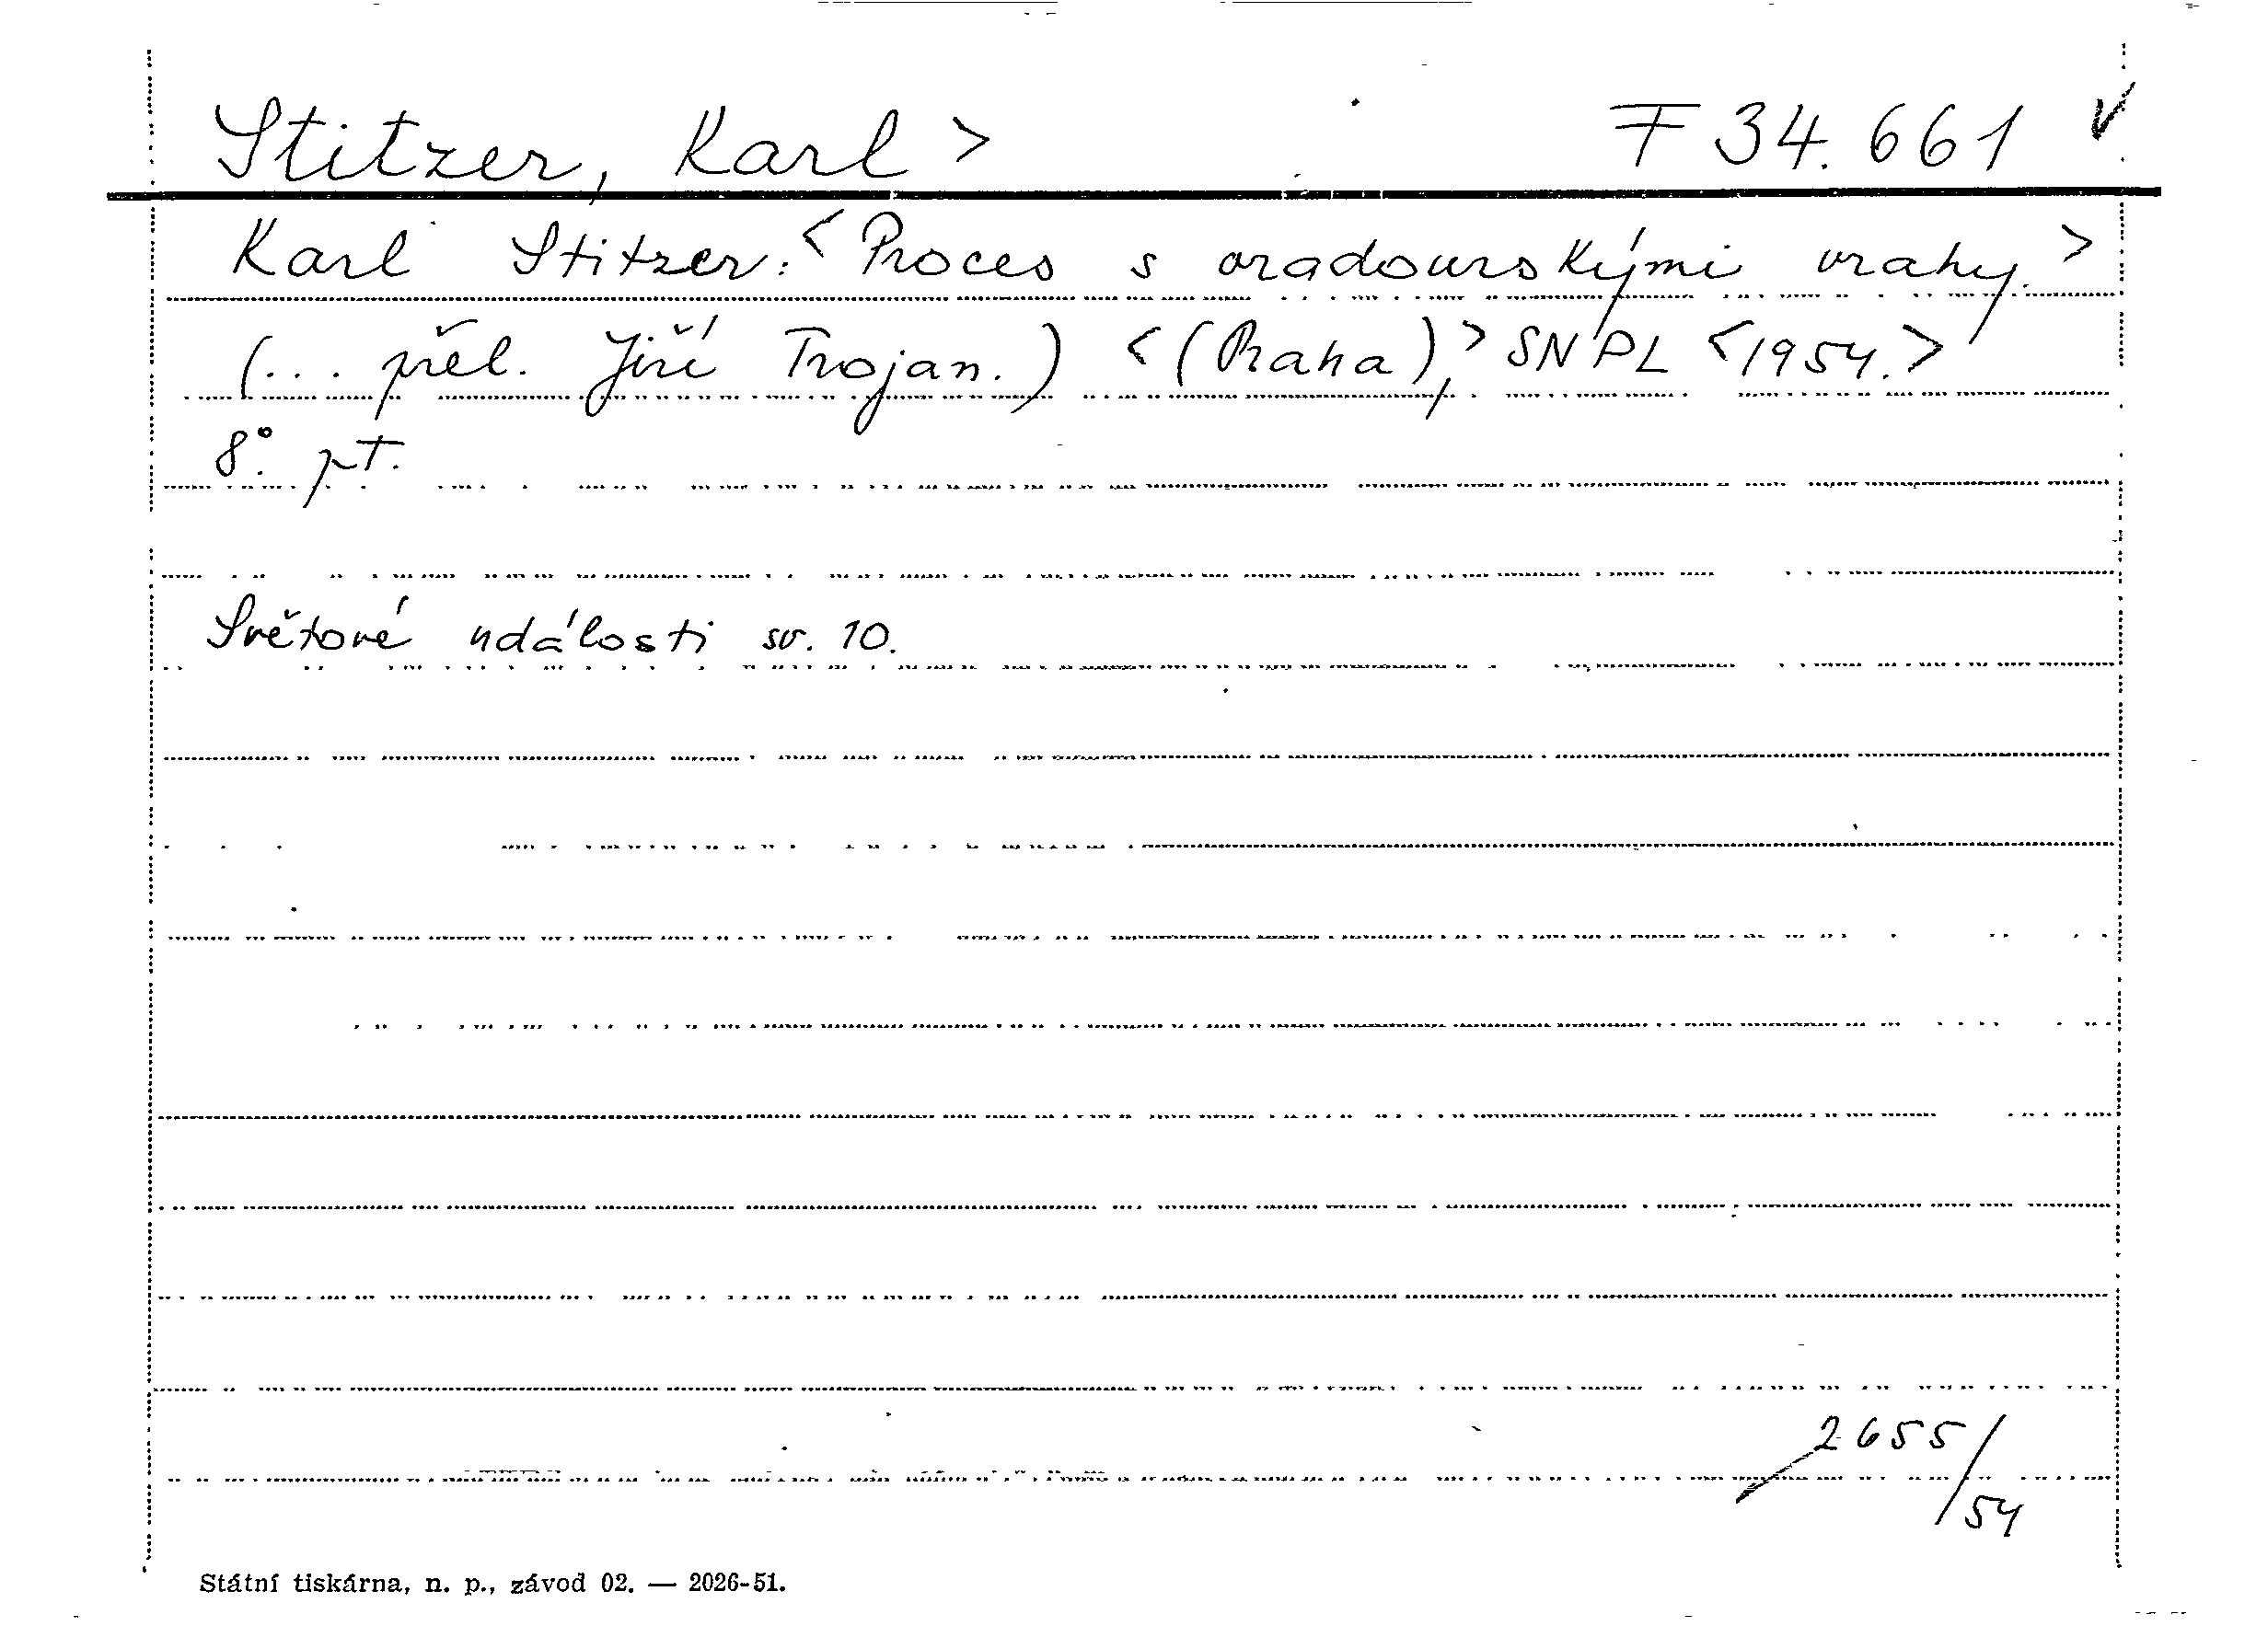 Stitzer, Karl > F 34.661 v
Karl Stitzer: < Proces s oradourskými vrahy. >
(... přel. Jiří Trojan.) < (Praha), > SNPL < 1954. >
8°. pt.
Světové události sv. 10.
2655/54
Státní tiskárna, n. p., závod 02. — 2026-51.